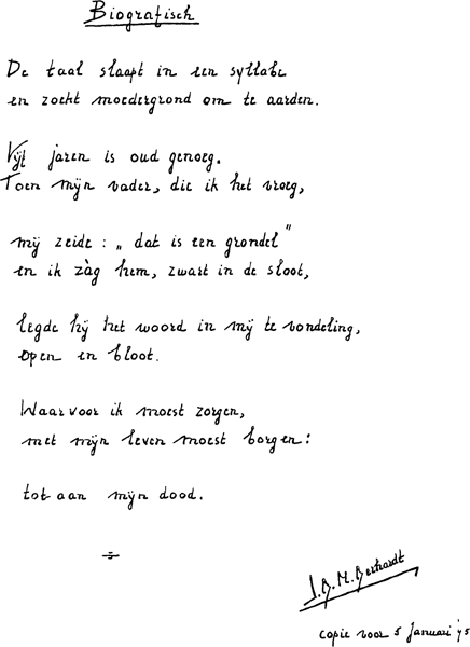 Biografisch
De taal slaapt in een syllabe
en zocht moedergrond om te aarden.
Vijf jaren is oud genoeg.
Toen mijn vader, die ik het vroeg,
mij zeide: „dat is een grondel”
en ik zàg hem, zwart in de sloot,
legde hij het woord in mij te vondeling,
open en bloot.
Waarvoor ik moest zorgen,
met mijn leven moest borgen:
tot aan mijn dood.
copie voor 5 Januari '75